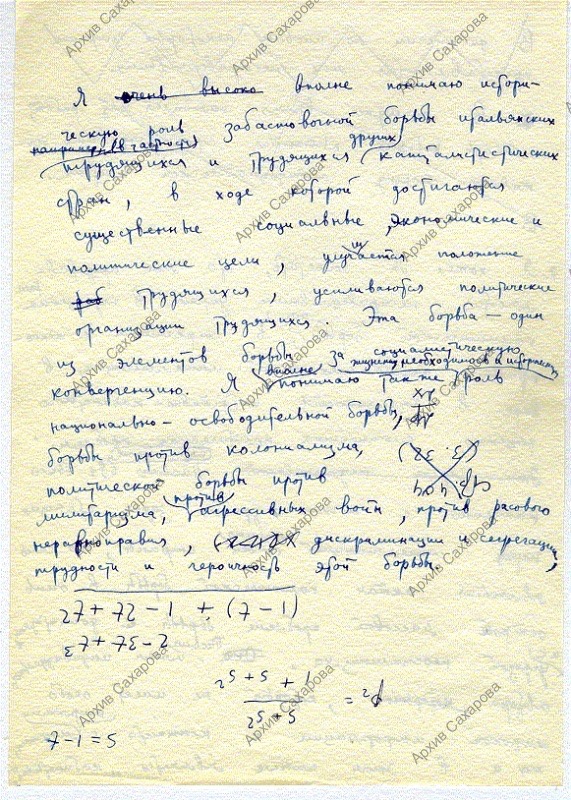 Я очень высоко вполне понимаю истори-
ческую роль забастовочной борьбы итальянских
например, в частности других
трудящихся и трудящихся капиталистических
стран, в ходе которой достигаются
существенные социальные, экономические и
политические цели, улучшается положение
раб трудящихся, усиливаются политические
организации трудящихся. Эта борьба — один
из элементов борьбы за социалистическую
конвергенцию. Я вполне понимаю также роль
жизненную необходимость и
национально-освободительной борьбы,
борьбы против колониализма,
политической борьбы против
милитаризма, против агрессивных войн, против расового
неравноправия, дискриминации и сегрегации,
трудности и героичность этой борьбы.
7-1=5
Архив Сахарова
Архив Сахарова
Архив Сахарова
Архив Сахарова
Архив Сахарова
Архив Сахарова
Архив Сахарова
Архив Сахарова
Архив Сахарова
Архив Сахарова
Архив Сахарова
Архив Сахарова
Архив Сахарова
Архив Сахарова